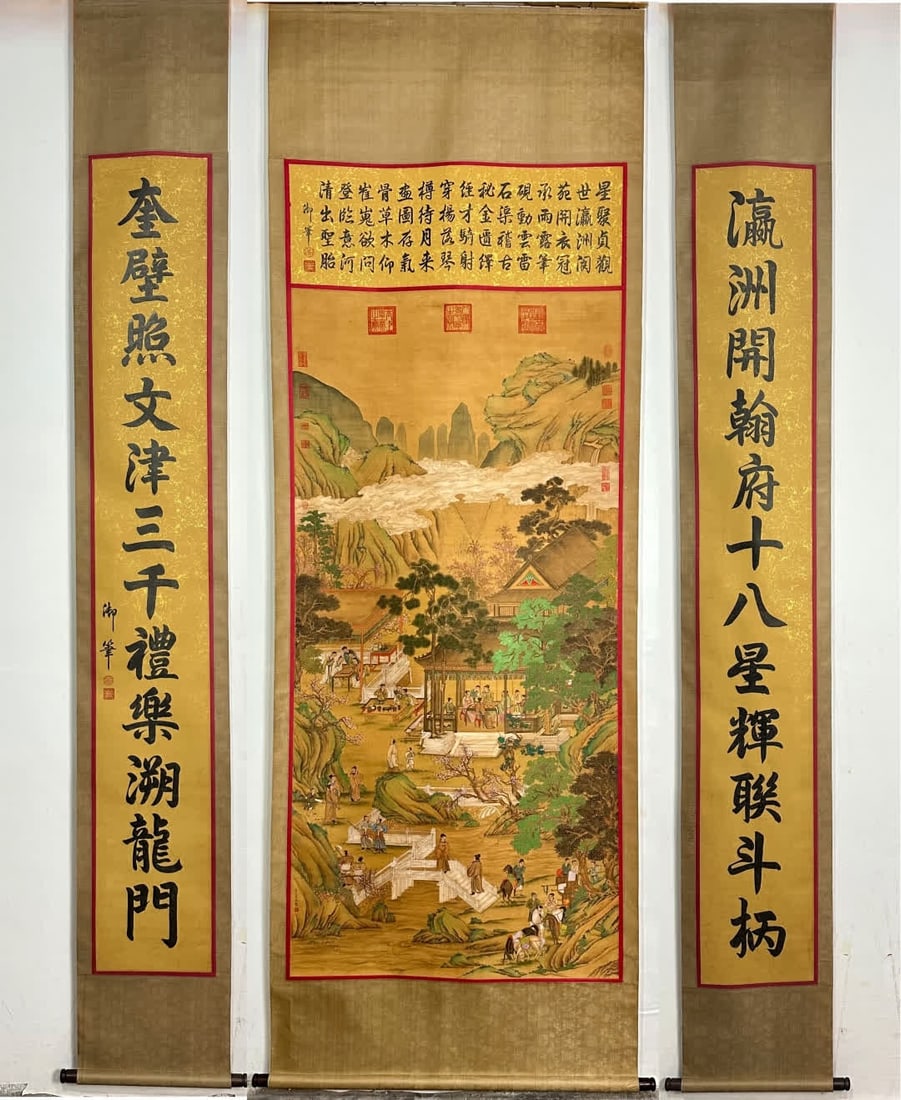 瀛洲開翰府十八星輝聯斗柄
星聚貞觀
世瀛洲閬
苑開衣冠
承雨露筆
硯動雲雷
石渠稽古
秘金匱繹
經才騎射
穿楊落琴
樽待月来
畫圖存氣
骨草木仰
崔嵬欲問
登臨意河
清出聖胎
御筆
奎壁照文津三千禮樂溯龍門
御筆